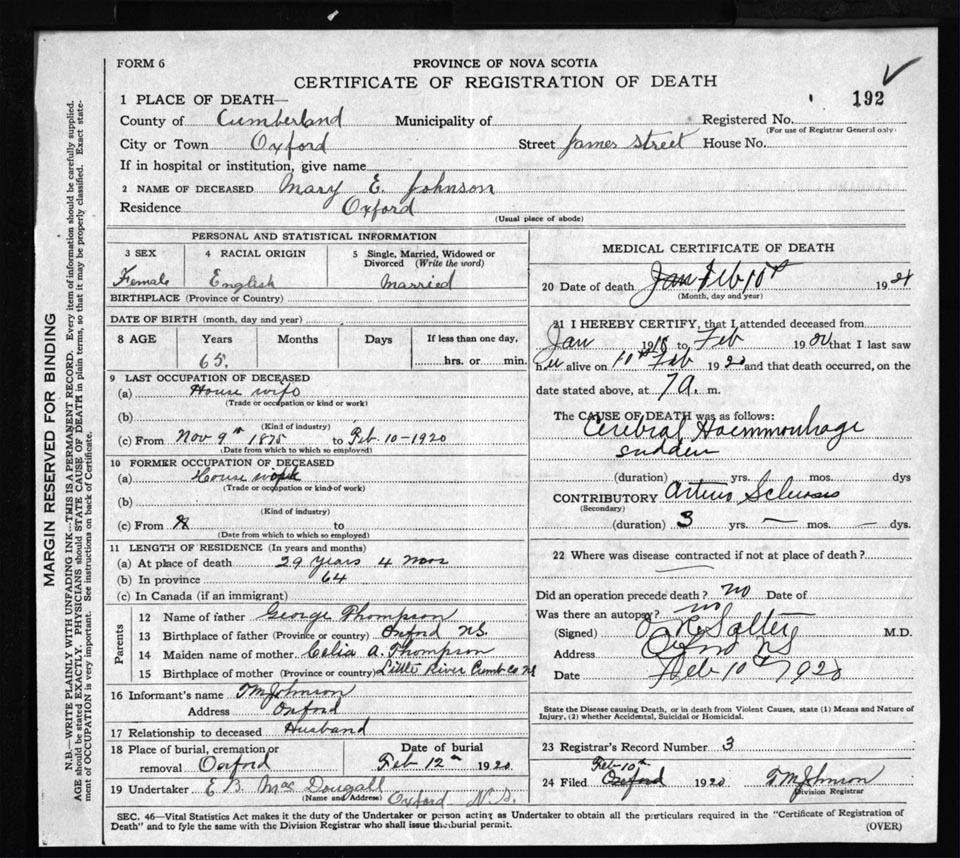 FORM 6
PROVINCE OF NOVA SCOTIA
CERTIFICATE OF REGISTRATION OF DEATH
192
1 PLACE OF DEATH—
County of Cumberland Municipality of Registered No.
(For use of Registrar General only)
City or Town Oxford Street James Street House No.
If in hospital or institution, give name
2 NAME OF DECEASED Mary E. Johnson
Residence Oxford
(Usual place of abode)
PERSONAL AND STATISTICAL INFORMATION
3 SEX 4 RACIAL ORIGIN 5 Single, Married, Widowed or Divorced (Write the word)
Female English Married
BIRTHPLACE (Province or Country)
DATE OF BIRTH (month, day and year)
8 AGE Years Months Days If less than one day,
65. hrs. or min.
9 LAST OCCUPATION OF DECEASED
(a) House wife
(Trade or occupation or kind or work)
(b)
(Kind of industry)
(c) From Nov 9th 1875 to Feb. 10-1920
(Date from which to which so employed)
10 FORMER OCCUPATION OF DECEASED
(a) House work
(Trade or occupation or kind of work)
(b)
(Kind of industry)
(c) From to
(Date from which to which so employed)
11 LENGTH OF RESIDENCE (In years and months)
(a) At place of death 29 years 4 mos
(b) In province 64
(c) In Canada (if an immigrant)
Parents
12 Name of father George Thompson
13 Birthplace of father (Province or country) Oxford NS.
14 Maiden name of mother Celia A. Thompson
15 Birthplace of mother (Province or country) Little River Cumb Co NS
16 Informant's name T M Johnson
Address Oxford
17 Relationship to deceased Husband
18 Place of burial, cremation or removal Oxford
Date of burial
Feb 12th 1920
19 Undertaker E B. Mac Dougall
(Name and Address) Oxford N.S.
MEDICAL CERTIFICATE OF DEATH
20 Date of death Jan Feb 10th 19
(Month, day and year)
21 I HEREBY CERTIFY, that I attended deceased from
Jan 1918 to Feb 1920 that I last saw
her alive on 10th Feb 1920 and that death occurred, on the
date stated above, at 7 a. m.
The CAUSE OF DEATH was as follows:
Cerebral Haemmorhage
sudden
(duration) yrs. mos. dys
CONTRIBUTORY Arterio Sclerosis
(Secondary)
(duration) 3 yrs. — mos. — dys.
22 Where was disease contracted if not at place of death?
Did an operation precede death? no Date of
Was there an autopsy? no
(Signed) M.D.
Address Oxford NS
Date Feb 10th 1920
State the Disease causing Death, or in death from Violent Causes, state (1) Means and Nature of
Injury, (2) whether Accidental, Suicidal or Homicidal.
23 Registrar's Record Number 3
Feb-10th
24 Filed Oxford 1920 T M Johnson
Division Registrar
SEC. 46—Vital Statistics Act makes it the duty of the Undertaker or person acting as Undertaker to obtain all the particulars required in the "Certificate of Registration of
Death" and to fyle the same with the Division Registrar who shall issue the burial permit.
(OVER)
MARGIN RESERVED FOR BINDING
N.B.—WRITE PLAINLY WITH UNFADING INK—THIS IS A PERMANENT RECORD. Every item of information should be carefully supplied.
AGE should be stated EXACTLY. PHYSICIANS should STATE CAUSE OF DEATH in plain terms, so that it may be properly classified. Exact state-
ment of OCCUPATION is very important. See instructions on back of Certificate.